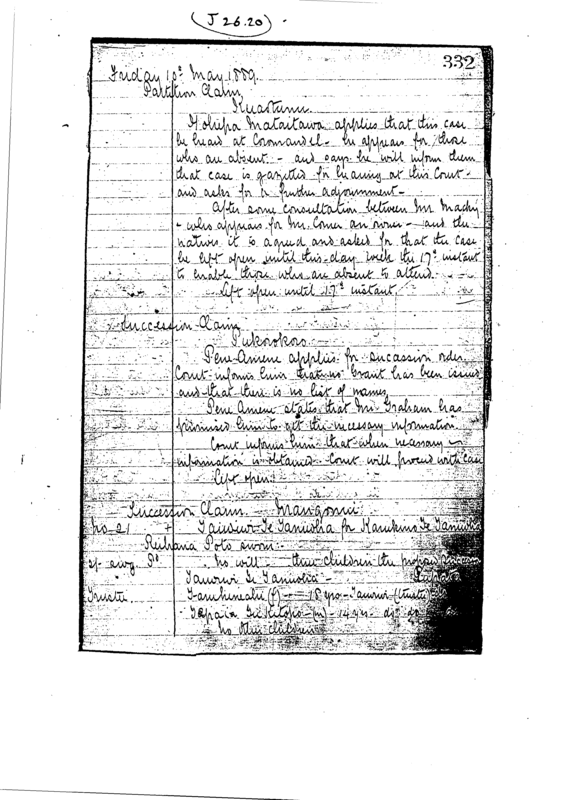 (J 26.20)
332
Friday 10th May 1889.
Partition Claim
Kuaotunu
Hohepa Mataitawa applies that this case
be heard at Coromandel - he appears for those
who are absent - and says he will inform them
that case is gazetted for hearing at this Court -
and asks for a further adjournment -
After some consultation between Mr.
- who appears for Mr. Comer an owner - and the
natives it is agreed and asked for that the case
be left open until this day week the 17th instant
to enable those who are absent to attend -
Left open until 17th instant.
Succession Claim
Pukorokoro
Pene Amene applies for succession order
Court informs him that no Grant has been issued
and that there is no list of names
Pene Amene states that Mr. Graham has
promised him to get the necessary information
Court informs him that when necessary
information is obtained Court will proceed with case
Left open
Succession Claim Mangonui
No 21 + Te Taniwha for Te Taniwha
Reihana Poto sworn -
No will - three children the
Te Taniwha -
Trustee (f) - 18 yrs - (trustee)
(m) - 14 yrs - do do
No other children